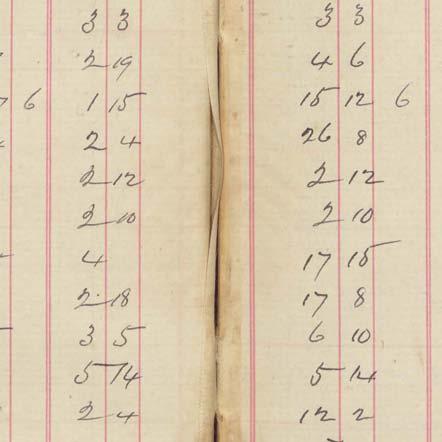 3 3 3 3
2 19 4 6
6 1 15 15 12 6
2 4 26 8
2 12 2 12
2 10 2 10
4 17 15
2 18 17 8
3 5 6 10
5 14 5 14
2 4 12 2